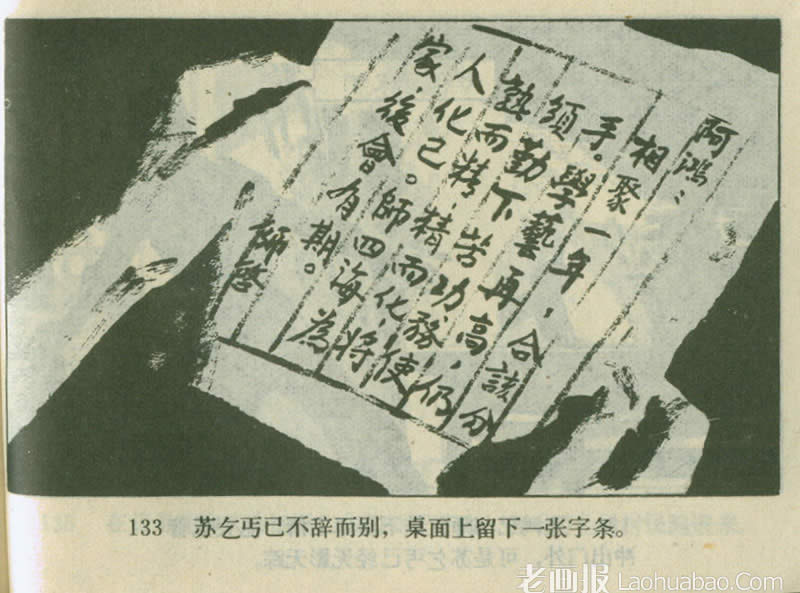 阿鴻：
相聚一年，合該分
手。學藝再高，仍
須勤下苦功，務使
熟而精，精而化，將
人化己。師四海為
家，後會有期。
師啓
133 苏乞丐已不辞而别，桌面上留下一张字条。
老画报 Laohuabao.Com